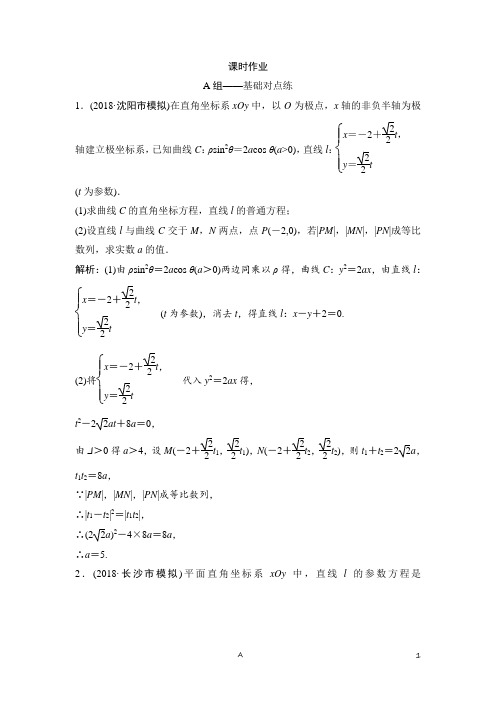 课时作业
A 组——基础对点练
1．(2018·沈阳市模拟)在直角坐标系 xOy 中，以 O 为极点，x 轴的非负半轴为极
轴建立极坐标系，已知曲线 C：ρsin²θ＝2acos θ(a>0)，直线 l：{x＝－2＋√2/2 t，
y＝√2/2 t
(t 为参数)．
(1)求曲线 C 的直角坐标方程，直线 l 的普通方程；
(2)设直线 l 与曲线 C 交于 M，N 两点，点 P(－2,0)，若|PM|，|MN|，|PN|成等比
数列，求实数 a 的值．
解析：(1)由 ρsin²θ＝2acos θ(a＞0)两边同乘以 ρ 得，曲线 C：y²＝2ax，由直线 l：
{x＝－2＋√2/2 t，
y＝√2/2 t
(t 为参数)，消去 t，得直线 l：x－y＋2＝0.
(2)将{x＝－2＋√2/2 t，
y＝√2/2 t
代入 y²＝2ax 得，
t²－2√2at＋8a＝0，
由 Δ＞0 得 a＞4，设 M(－2＋√2/2 t₁，√2/2 t₁)，N(－2＋√2/2 t₂，√2/2 t₂)，则 t₁＋t₂＝2√2a，
t₁t₂＝8a，
∵|PM|，|MN|，|PN|成等比数列，
∴|t₁－t₂|²＝|t₁t₂|，
∴(2√2a)²－4×8a＝8a，
∴a＝5.
2．(2018·长沙市模拟)平面直角坐标系 xOy 中，直线 l 的参数方程是
A 1